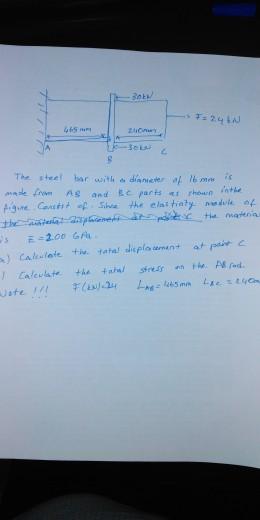 30kN
F = 24 kN
465mm
240mm
30kN
A
B
C
The steel bar with a diameter of 16 mm is
made from AB and BC parts as shown in the
figure. Consist of. Since the elasticity module of
the material displacement at point C the material
is E = 200 GPa.
a) Calculate the total displacement at point C
) Calculate the total stress on the AB rod.
Note !!! F(kN)=24 LAB = 465mm LBC = 240mm